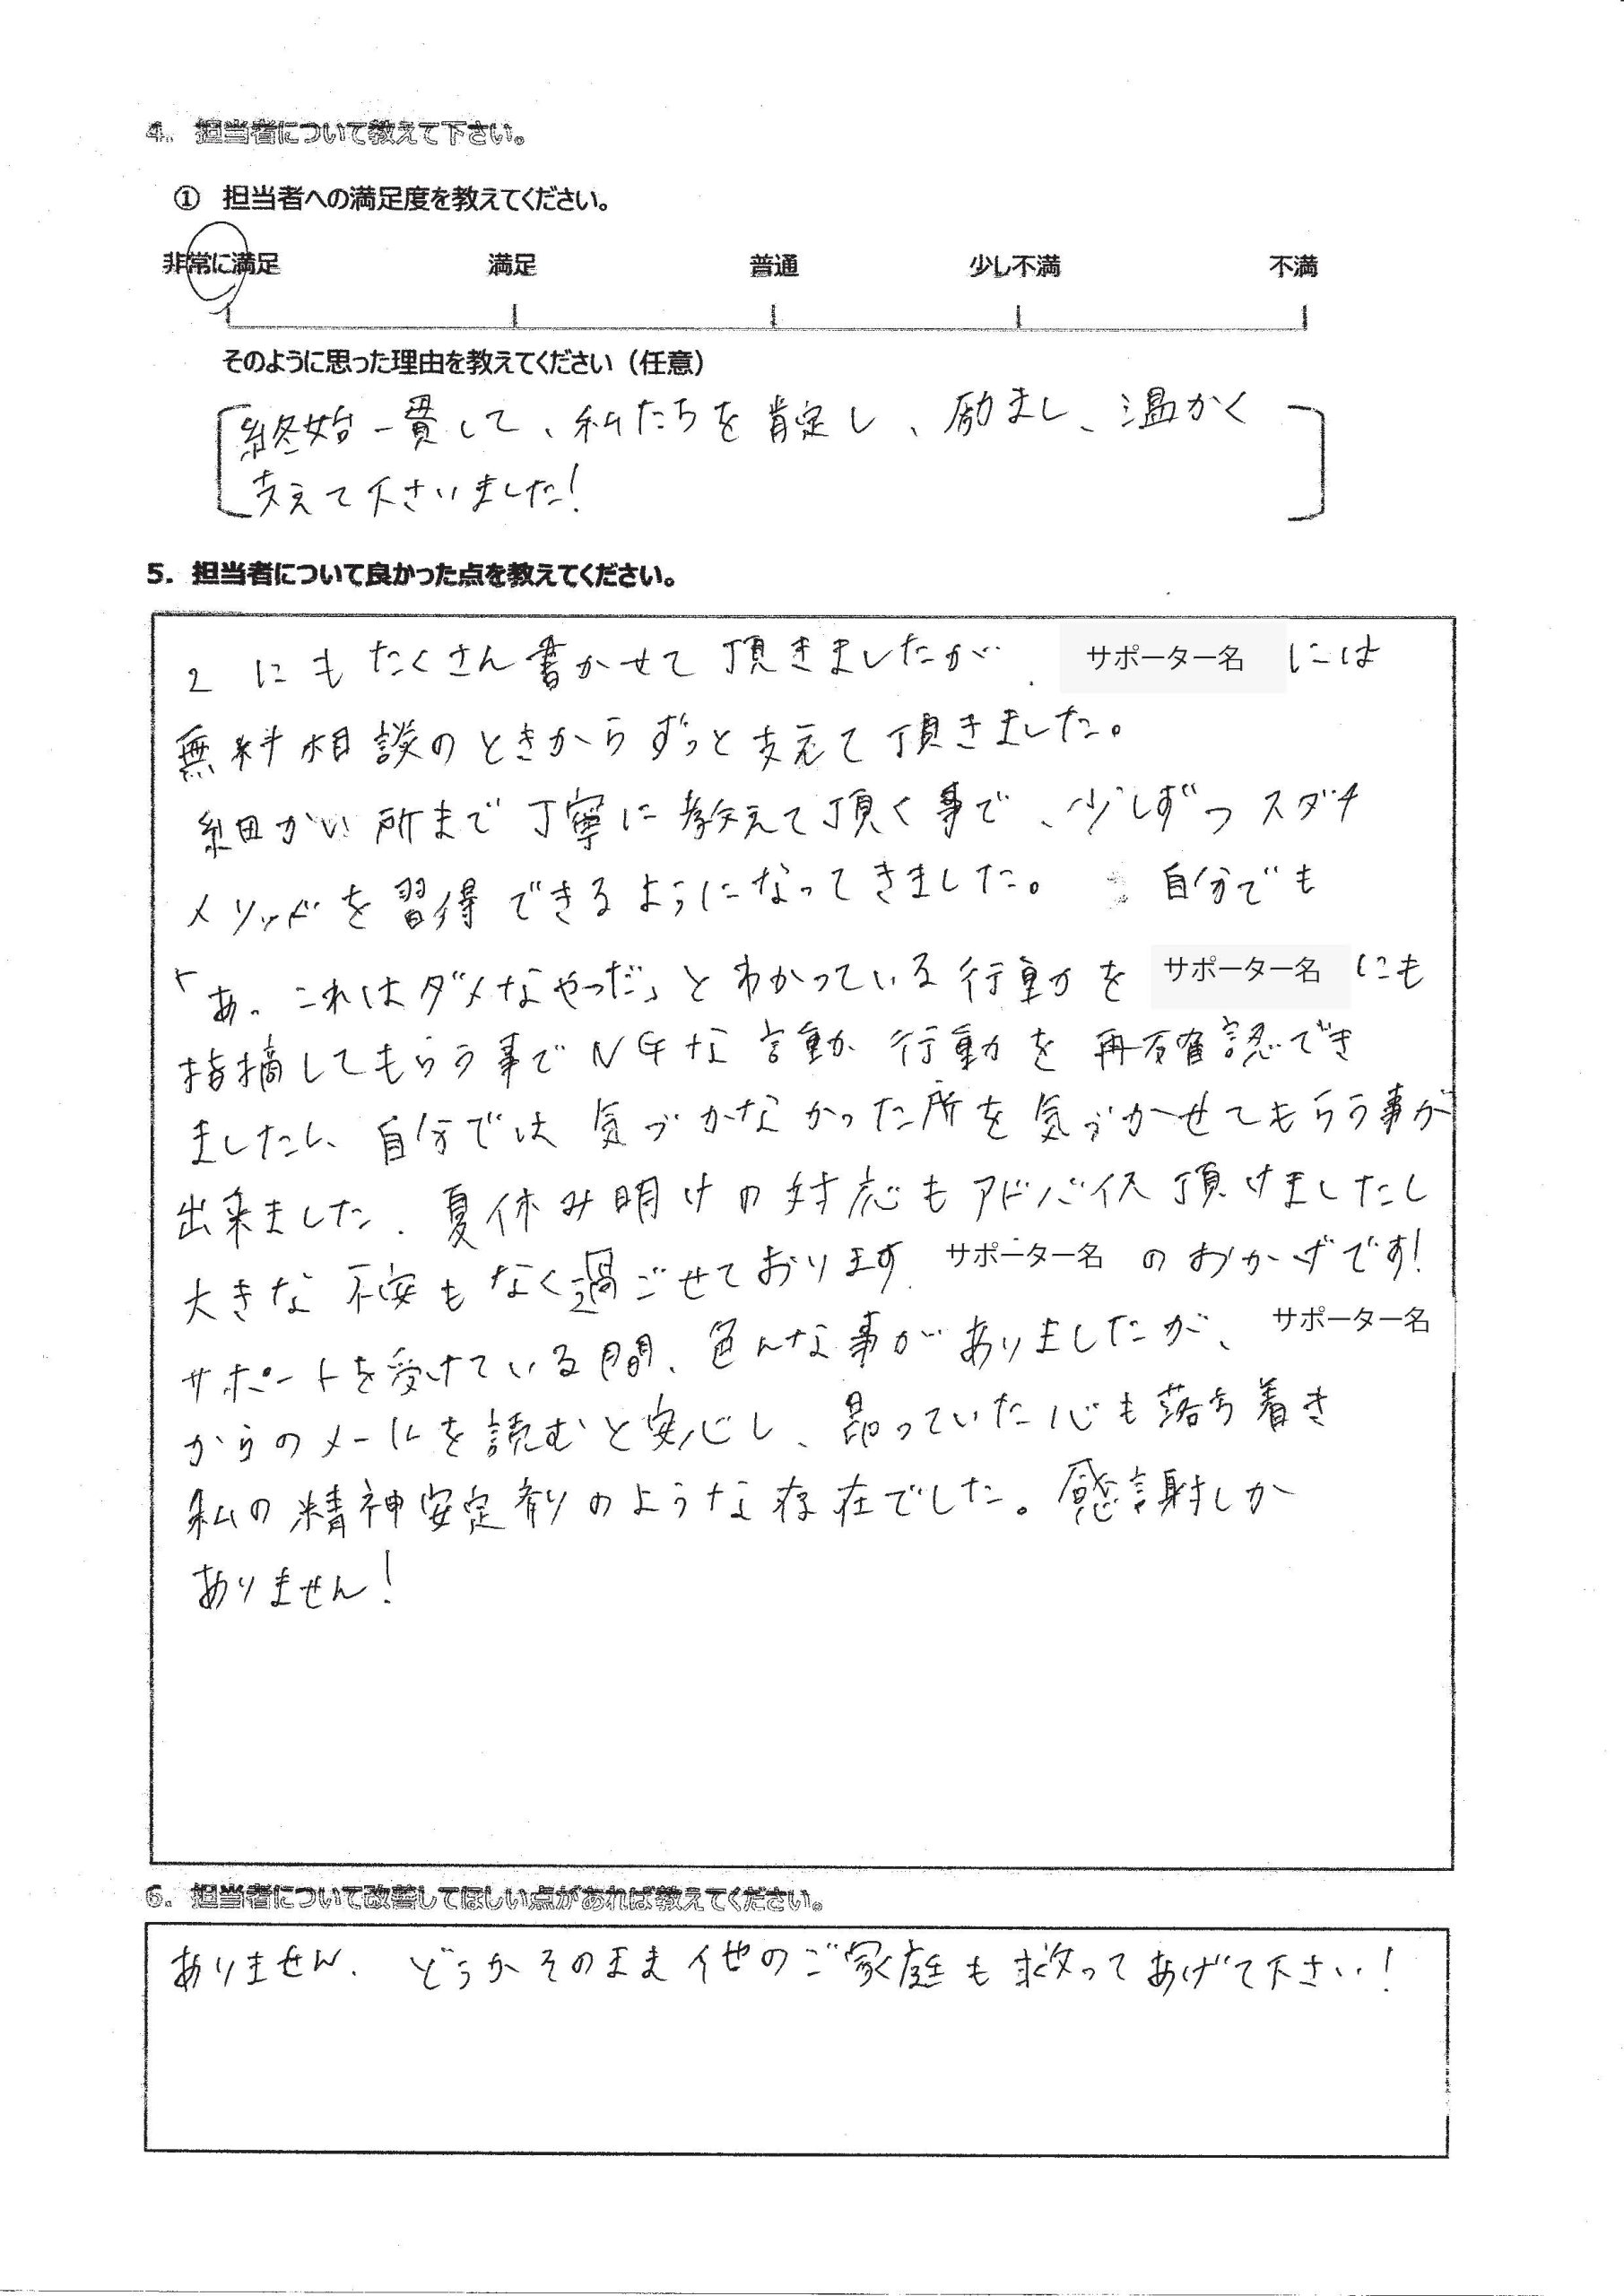 4. 担当者について教えて下さい。
① 担当者への満足度を教えてください。
非常に満足 満足 普通 少し不満 不満
そのように思った理由を教えてください（任意）
終始一貫して、私たちを肯定し、励まし、温かく
支えて下さいました!
5. 担当者について良かった点を教えてください。
2 にもたくさん書かせて頂きましたが、サポーター名 には
無料相談のときからずっと支えて頂きました。
細かい所まで丁寧に教えて頂く事で、少しずつスダチ
メソッドを習得できるようになってきました。 自分でも
「あ、これはダメなやつだ」とわかっている行動を サポーター名 にも
指摘してもらう事でNGな言動か行動を再確認でき
ましたし、自分では気づかなかった所を気づかせてもらう事が
出来ました。夏休み明けの対応もアドバイス頂けましたし
大きな不安もなく過ごせております。サポーター名 のおかげです!
サポートを受けている間、色んな事がありましたが、サポーター名
からのメールを読むと安心し、昂っていた心も落ち着き
私の精神安定剤のような存在でした。感謝しか
ありません!
6. 担当者について改善してほしい点があれば教えてください。
ありません。どうかそのまま他のご家庭も救ってあげて下さい!